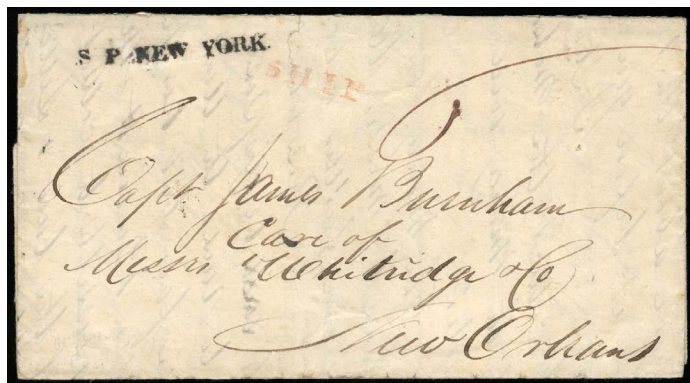 S. P. NEW YORK.
SHIP
Capt James Burnham
Care of
Messrs Whitridge & Co
New Orleans